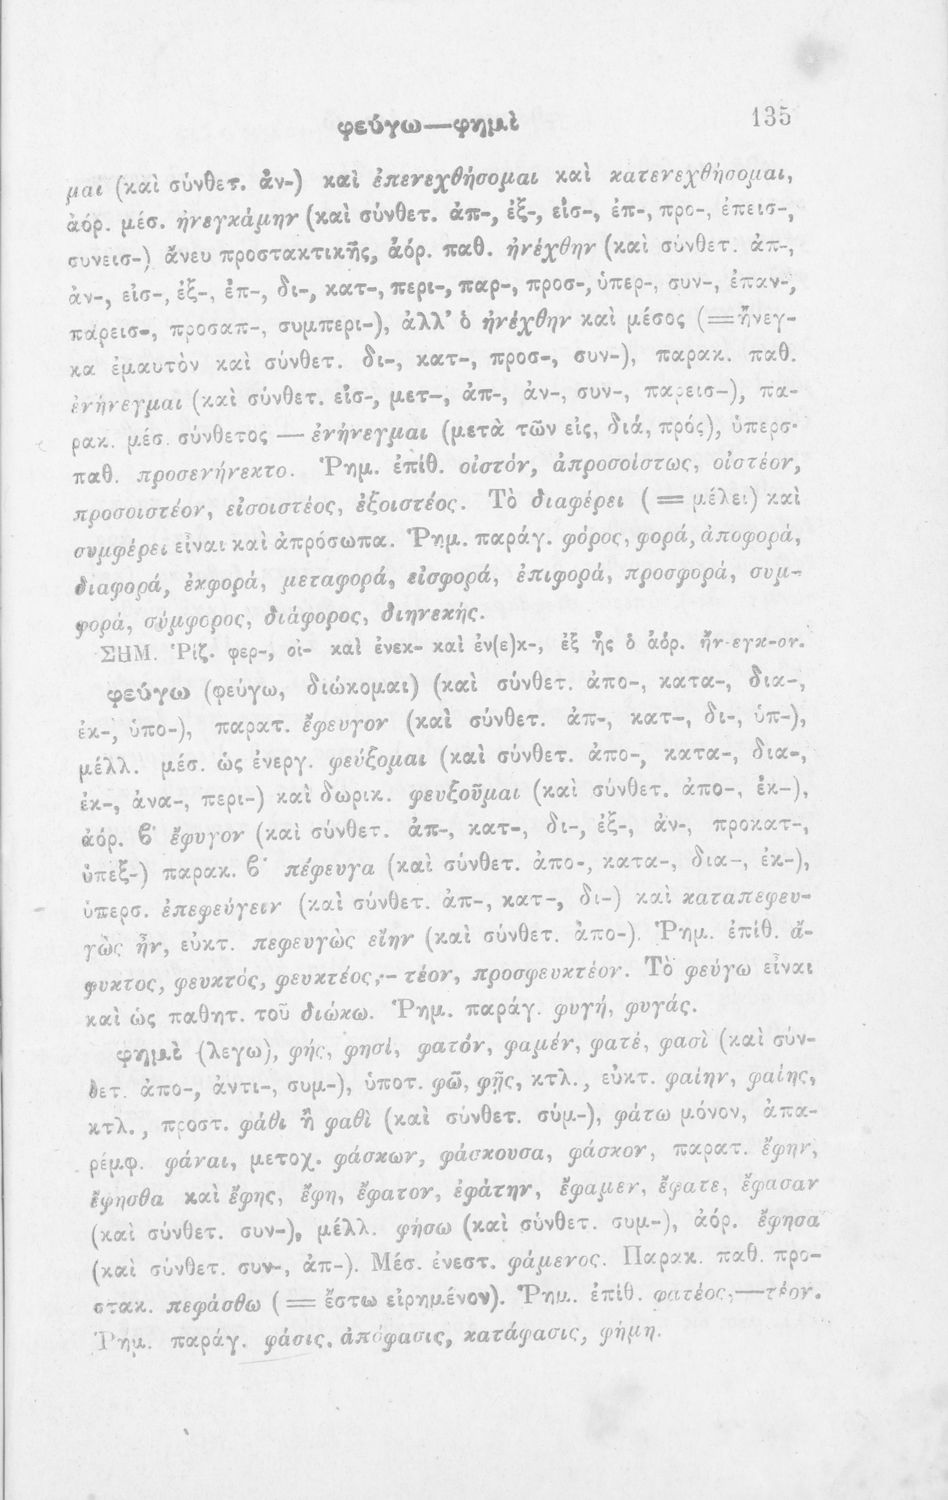 φεύγω—φημὶ 135
μαι (καὶ σύνθετ. ἀν-) καὶ ἐπενεχθήσομαι καὶ κατενεχθήσομαι,
ἀόρ. μέσ. ἠνεγκάμην (καὶ σύνθετ. ἀπ-, ἐξ-, εἰσ-, ἐπ-, προ-, ἐπεισ-,
συνεισ-) ἄνευ προστακτικῆς, ἀόρ. παθ. ἠνέχθην (καὶ σύνθετ. ἀπ-,
ἀν-, εἰσ-, ἐξ-, ἐπ-, δι-, κατ-, περι-, παρ-, προσ-, ὑπερ-, συν-, ἐπαν-,
παρεισ-, προσαπ-, συμπερι-), ἀλλ' ὁ ἠνέχθην καὶ μέσος (=ἤνεγ-
κα ἐμαυτὸν καὶ σύνθετ. δι-, κατ-, προσ-, συν-), παρακ. παθ.
ἐνήνεγμαι (καὶ σύνθετ. εἰσ-, μετ-, ἀπ-, ἀν-, συν-, παρεισ-), πα-
ρακ. μέσ. σύνθετος — ἐνήνεγμαι (μετὰ τῶν εἰς, διά, πρός), ὑπερσ.
παθ. προσενήνεκτο. Ῥημ. ἐπίθ. οἰστόν, ἀπροσοίστως, οἰστέον,
προσοιστέον, εἰσοιστέος, ἐξοιστέος. Τὸ διαφέρει (= μέλει) καὶ
συμφέρει εἶναι καὶ ἀπρόσωπα. Ῥημ. παράγ. φόρος, φορά, ἀποφορά,
διαφορά, ἐκφορά, μεταφορά, εἰσφορά, ἐπιφορά, προσφορά, συμ-
φορά, σύμφορος, διάφορος, διηνεκής.
ΣΗΜ. Ῥίζ. φερ-, οἰ- καὶ ἐνεκ- καὶ ἐν(ε)κ-, ἐξ ἧς ὁ ἀόρ. ἤν-εγκ-ον.
φεύγω (φεύγω, διώκομαι) (καὶ σύνθετ. ἀπο-, κατα-, δια-,
ἐκ-, ὑπο-), παρατ. ἔφευγον (καὶ σύνθετ. ἀπ-, κατ-, δι-, ὑπ-),
μέλλ. μέσ. ὡς ἐνεργ. φεύξομαι (καὶ σύνθετ. ἀπο-, κατα-, δια-,
ἐκ-, ἀνα-, περι-) καὶ δωρικ. φευξοῦμαι (καὶ σύνθετ. ἀπο-, ἐκ-),
ἀόρ. β' ἔφυγον (καὶ σύνθετ. ἀπ-, κατ-, δι-, ἐξ-, ἀν-, προκατ-,
ὑπεξ-) παρακ. β' πέφευγα (καὶ σύνθετ. ἀπο-, κατα-, δια-, ἐκ-),
ὑπερσ. ἐπεφεύγειν (καὶ σύνθετ. ἀπ-, κατ-, δι-) καὶ καταπεφευ-
γὼς ἦν, εὐκτ. πεφευγὼς εἴην (καὶ σύνθετ. ἀπο-). Ῥημ. ἐπίθ. ἄ-
φυκτος, φευκτός, φευκτέος,- τέον, προσφευκτέον. Τὸ φεύγω εἶναι
καὶ ὡς παθητ. τοῦ διώκω. Ῥημ. παράγ. φυγή, φυγάς.
φημὶ (λεγω), φῄς, φησί, φατόν, φαμέν, φατέ, φασὶ (καὶ σύν-
θετ. ἀπο-, ἀντι-, συμ-), ὑποτ. φῶ, φῇς, κτλ., εὐκτ. φαίην, φαίης,
κτλ., προστ. φάθι ἢ φαθὶ (καὶ σύνθετ. σύμ-), φάτω μόνον, ἀπα-
ρέμφ. φάναι, μετοχ. φάσκων, φάσκουσα, φάσκον, παρατ. ἔφην,
ἔφησθα καὶ ἔφης, ἔφη, ἔφατον, ἐφάτην, ἔφαμεν, ἔφατε, ἔφασαν
(καὶ σύνθετ. συν-), μέλλ. φήσω (καὶ σύνθετ. συμ-), ἀόρ. ἔφησα
(καὶ σύνθετ. συν-, ἀπ-). Μέσ. ἐνεστ. φάμενος. Παρακ. παθ. προ-
στακ. πεφάσθω (= ἔστω εἰρημένον). Ῥημ. ἐπίθ. φατέος,—τέον.
Ῥημ. παράγ. φάσις, ἀπόφασις, κατάφασις, φήμη.